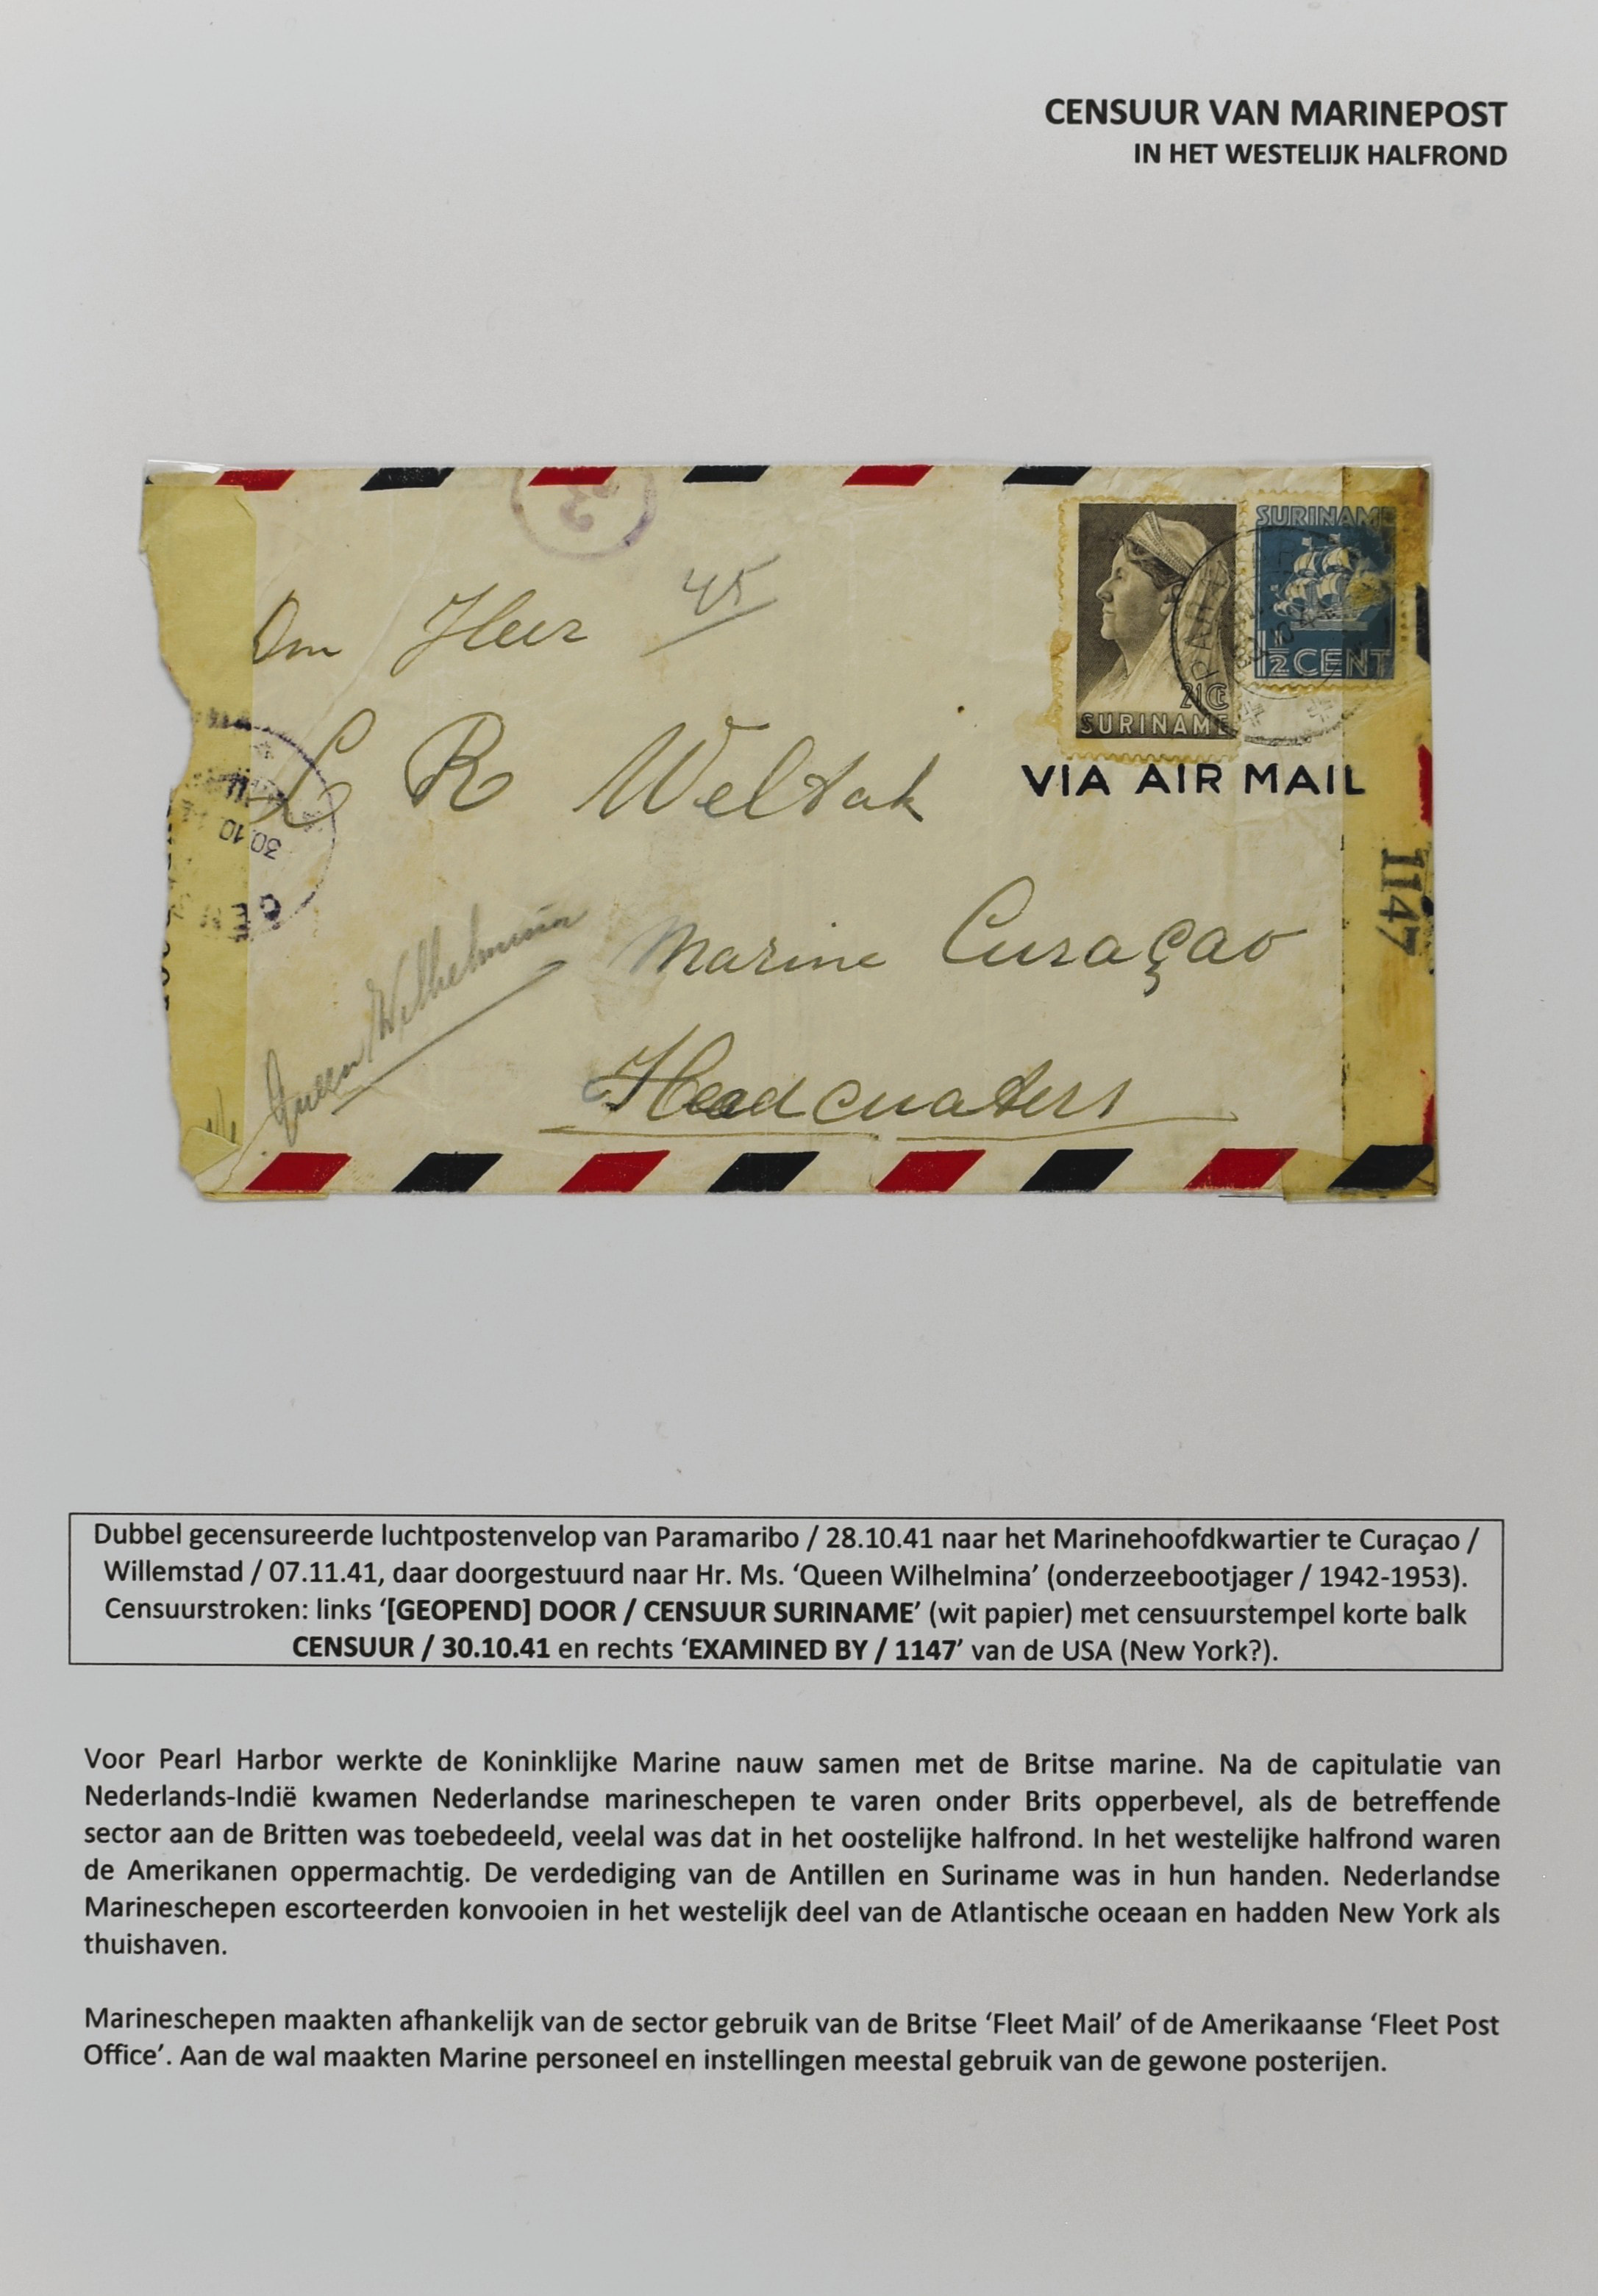 CENSUUR VAN MARINEPOST
IN HET WESTELIJK HALFROND
23
45
Den Heer
SURINAME
1½ CENT
21 CT
SURINAME
PARA
L R Welvak
VIA AIR MAIL
30.10
CEN
1147
Marine Curaçao
Queen Wilhelmina
Headcuaters
Dubbel gecensureerde luchtpostenvelop van Paramaribo / 28.10.41 naar het Marinehoofdkwartier te Curaçao /
Willemstad / 07.11.41, daar doorgestuurd naar Hr. Ms. ‘Queen Wilhelmina’ (onderzeebootjager / 1942-1953).
Censuurstroken: links ‘[GEOPEND] DOOR / CENSUUR SURINAME’ (wit papier) met censuurstempel korte balk
CENSUUR / 30.10.41 en rechts ‘EXAMINED BY / 1147’ van de USA (New York?).
Voor Pearl Harbor werkte de Koninklijke Marine nauw samen met de Britse marine. Na de capitulatie van
Nederlands-Indië kwamen Nederlandse marineschepen te varen onder Brits opperbevel, als de betreffende
sector aan de Britten was toebedeeld, veelal was dat in het oostelijke halfrond. In het westelijke halfrond waren
de Amerikanen oppermachtig. De verdediging van de Antillen en Suriname was in hun handen. Nederlandse
Marineschepen escorteerden konvooien in het westelijk deel van de Atlantische oceaan en hadden New York als
thuishaven.
Marineschepen maakten afhankelijk van de sector gebruik van de Britse ‘Fleet Mail’ of de Amerikaanse ‘Fleet Post
Office’. Aan de wal maakten Marine personeel en instellingen meestal gebruik van de gewone posterijen.